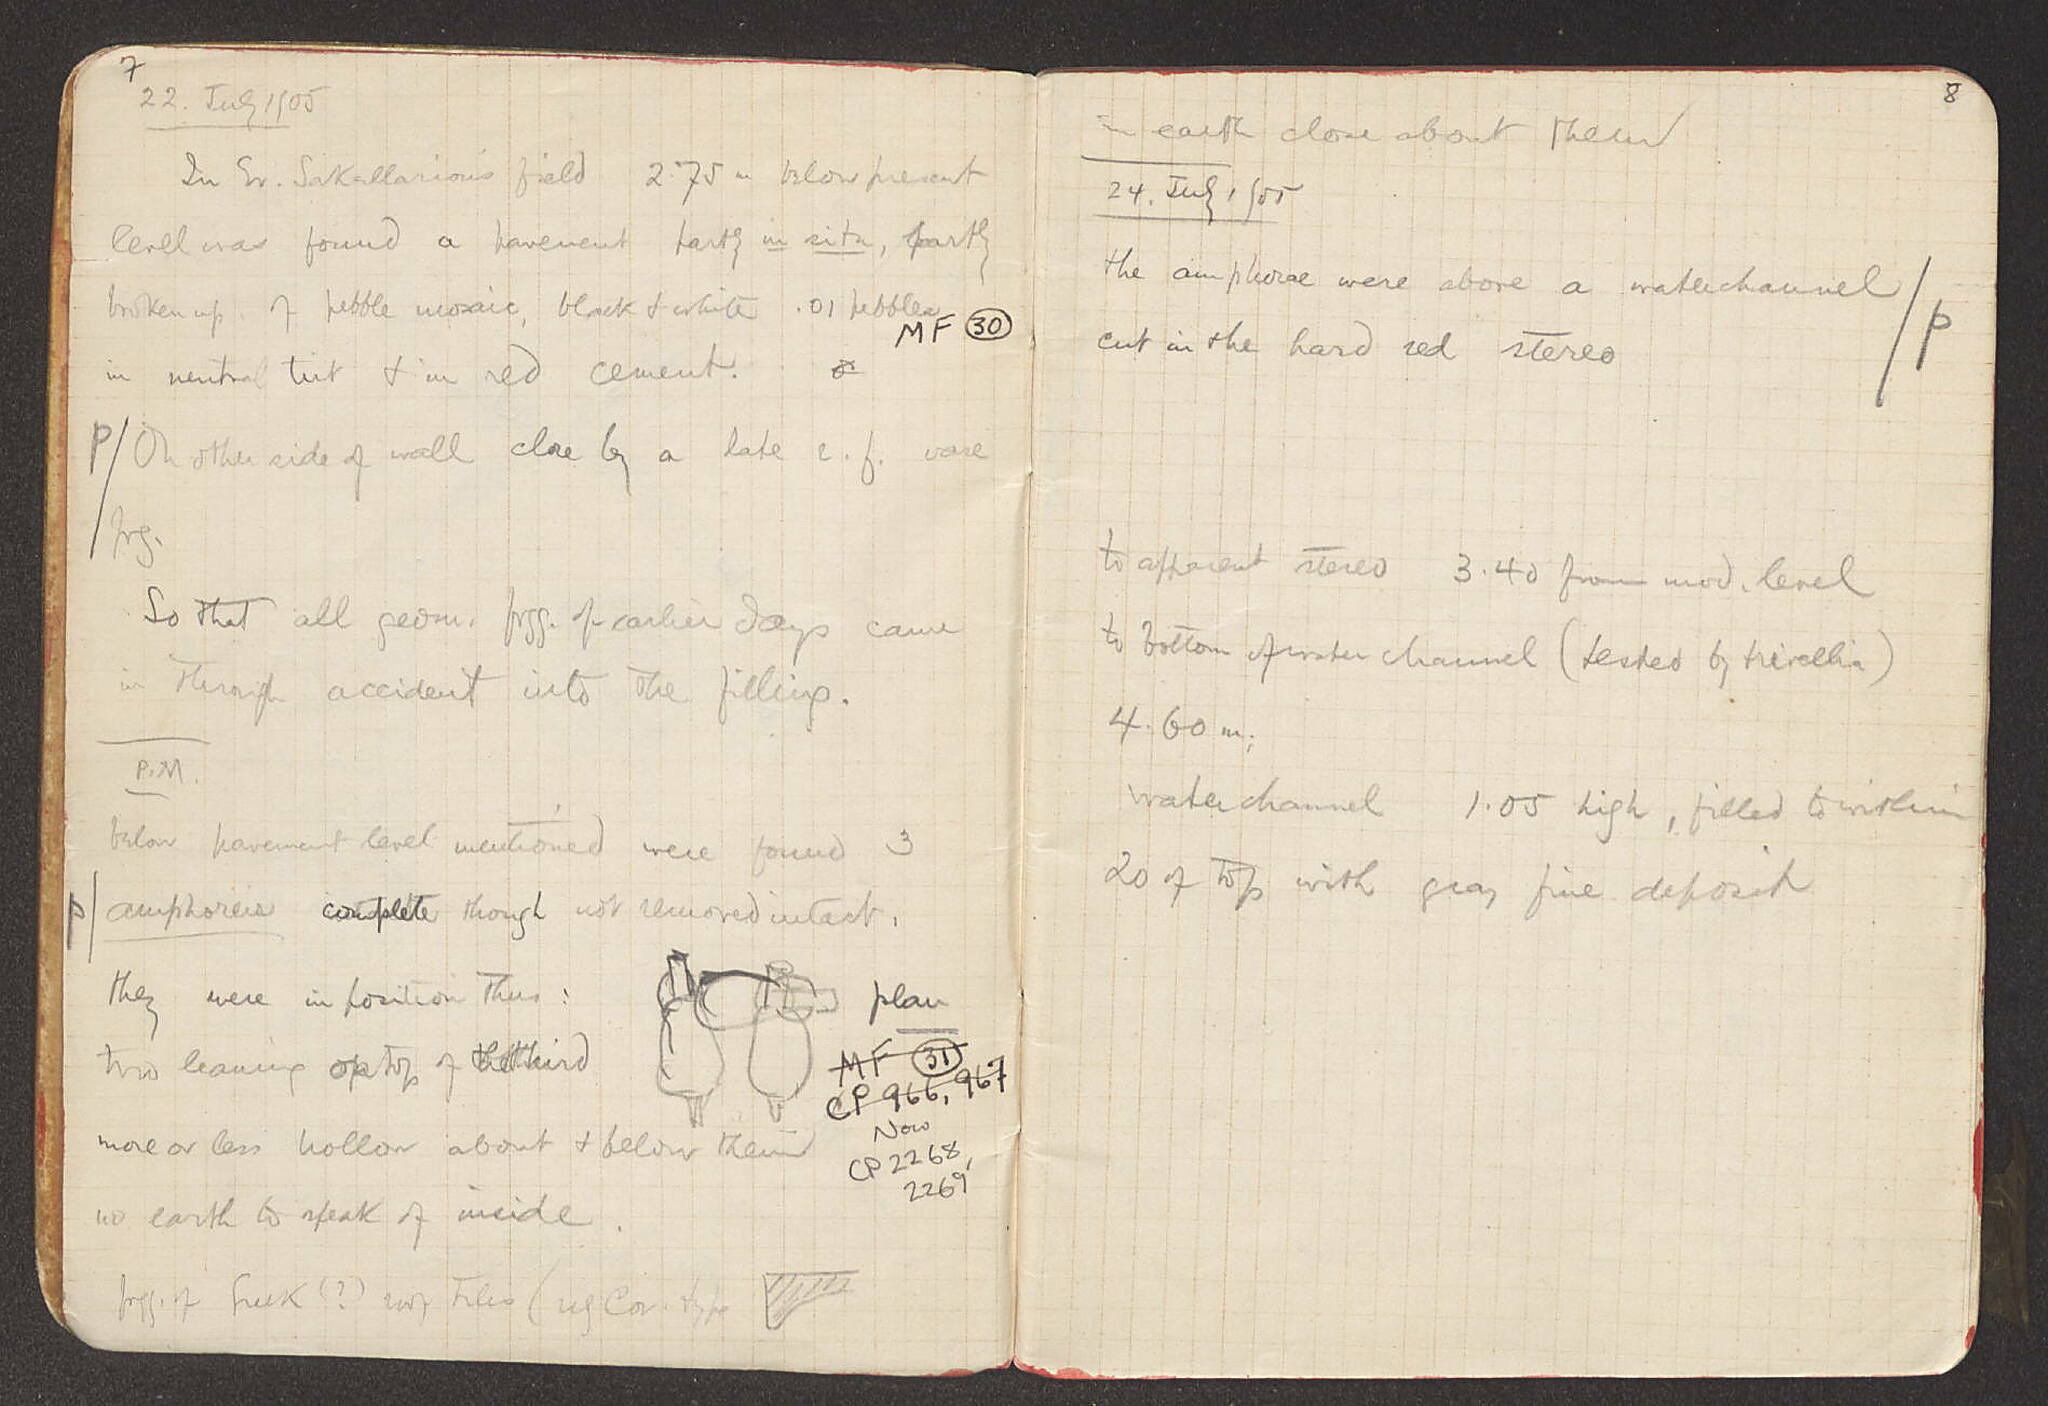 7
22. July 1905
In Ev. Sakellarion's field 2.75 m below present
level was found a pavement partly in situ, partly
broken up. of pebble mosaic, black & white .01 pebbles
MF 30
in neutral tint & in red cement.
P/ On other side of wall close by a late r.f. vase
frg.
So that all geom. frgg. of earlier days came
in through accident into the filling.
P.M.
below pavement level mentioned were found 3
P/ amphoreis complete though not removed intact.
they were in position thus:
plan
two leaning on top of the third
MF 31
CP 966, 967
Now
CP 2268,
2269
more or less hollow about & below them
no earth to speak of inside.
frgg. of Greek (?) roof tiles (reg Cor. type
8
in earth close about them
24. July 1905
the amphorae were above a waterchannel
cut in the hard red stereo
/P
to apparent stereo 3.40 from mod. level
to bottom of water channel (tested by trivellia)
4.60 m;
waterchannel 1.05 high, filled to within
20 of top with gray fine deposit